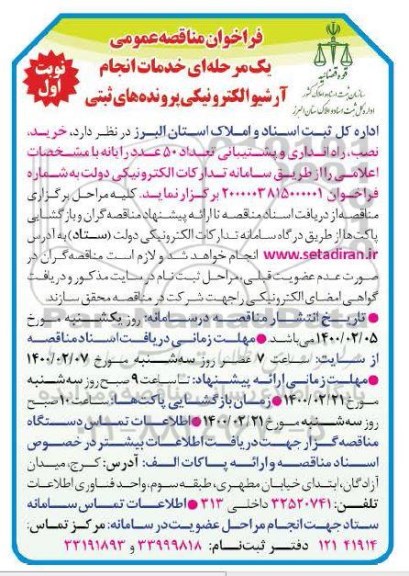 فراخوان مناقصه عمومی
یک مرحله‌ای خدمات انجام
آرشیو الکترونیکی پرونده‌های ثبتی
نوبت اول
قوه قضائیه
سازمان ثبت اسناد و املاک کشور
اداره کل ثبت اسناد و املاک استان البرز
اداره کل ثبت اسناد و املاک استان البرز در نظر دارد، خرید،
نصب، راه‌اندازی و پشتیبانی تعداد ۵۰ عدد رایانه با مشخصات
اعلامی را از طریق سامانه تدارکات الکترونیکی دولت به شماره
فراخوان ۲۰۰۰۰۰۳۸۱۵۰۰۰۰۰۱ برگزار نماید. کلیه مراحل برگزاری
مناقصه از دریافت اسناد مناقصه تا ارائه پیشنهاد مناقصه‌گران و بازگشایی
پاکت‌ها از طریق درگاه سامانه تدارکات الکترونیکی دولت (ستاد) به آدرس
www.setadiran.ir انجام خواهد شد و لازم است مناقصه‌گران در
صورت عدم عضویت قبلی، مراحل ثبت نام در سایت مذکور و دریافت
گواهی امضای الکترونیکی را جهت شرکت در مناقصه محقق سازند
● تاریخ انتشار مناقصه در سامانه: روز یکشنبه مورخ
۱۴۰۰/۰۲/۰۵ می‌باشد. ● مهلت زمانی دریافت اسناد مناقصه
از سایت: ساعت ۷ عصر روز سه‌شنبه مورخ ۱۴۰۰/۰۲/۰۷
● مهلت زمانی ارائه پیشنهاد: تا ساعت ۹ صبح روز سه‌شنبه
مورخ ۱۴۰۰/۰۲/۲۱ ● زمان بازگشایی پاکت‌ها: ساعت ۱۰ صبح
روز سه‌شنبه مورخ ۱۴۰۰/۰۲/۲۱ ● اطلاعات تماس دستگاه
مناقصه‌گزار جهت دریافت اطلاعات بیشتر در خصوص
اسناد مناقصه و ارائه پاکات الف: آدرس: کرج، میدان
آزادگان، ابتدای خیابان مطهری، طبقه سوم، واحد فناوری اطلاعات
تلفن: ۳۲۵۲۰۷۴۱ داخلی ۳۱۳ ● اطلاعات تماس سامانه
ستاد جهت انجام مراحل عضویت در سامانه: مرکز تماس:
۴۱۹۱۴ ۱۲۱ دفتر ثبت‌نام: ۳۳۹۹۹۸۱۸ و ۳۳۱۹۱۸۹۳